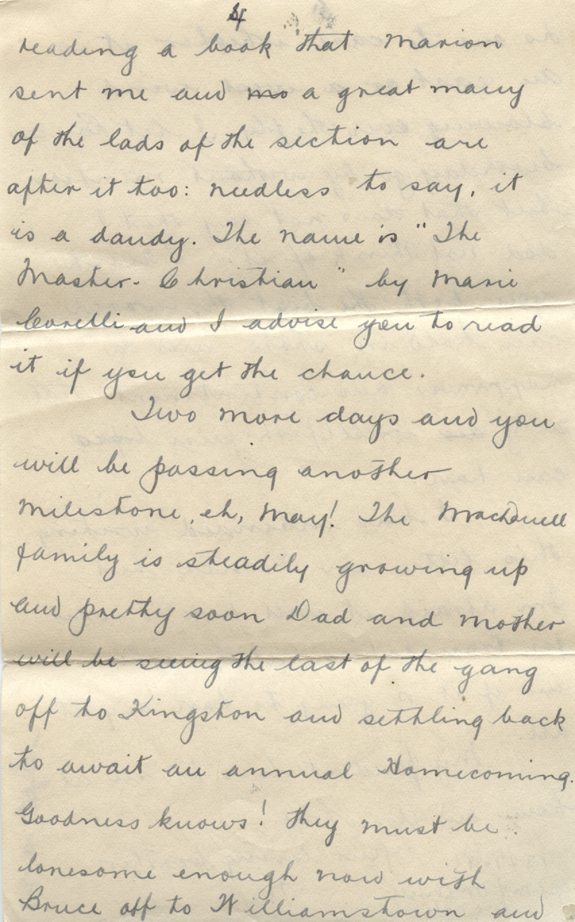 4
reading a book that Marion
sent me and mo a great many
of the lads of the section are
after it too: needless to say, it
is a dandy. The name is "The
Master-Christian" by Marie
Corelli and I advise you to read
it if you get the chance.
Two more days and you
will be passing another
milestone, eh, May! The
family is steadily growing up
and pretty soon Dad and Mother
will be seeing the last of the gang
off to Kingston and settling back
to await an annual Homecoming.
Goodness knows! they must be
lonesome enough now with
Bruce off to Williamstown and